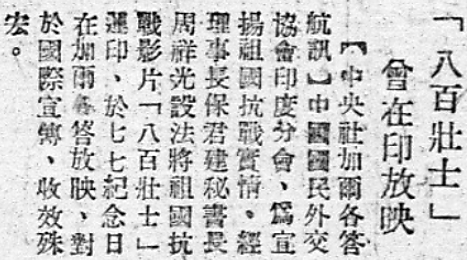 「八百壯士」
會在印放映
【中央社加爾各答
航訊】中國國民外交
協會印度分會、爲宣
揚祖國抗戰實情、經
理事長保君建秘書長
周祥光設法將祖國抗
戰影片「八百壯士」
運印、於七七紀念日
在加爾各答放映、對
於國際宣傳、收效殊
宏。